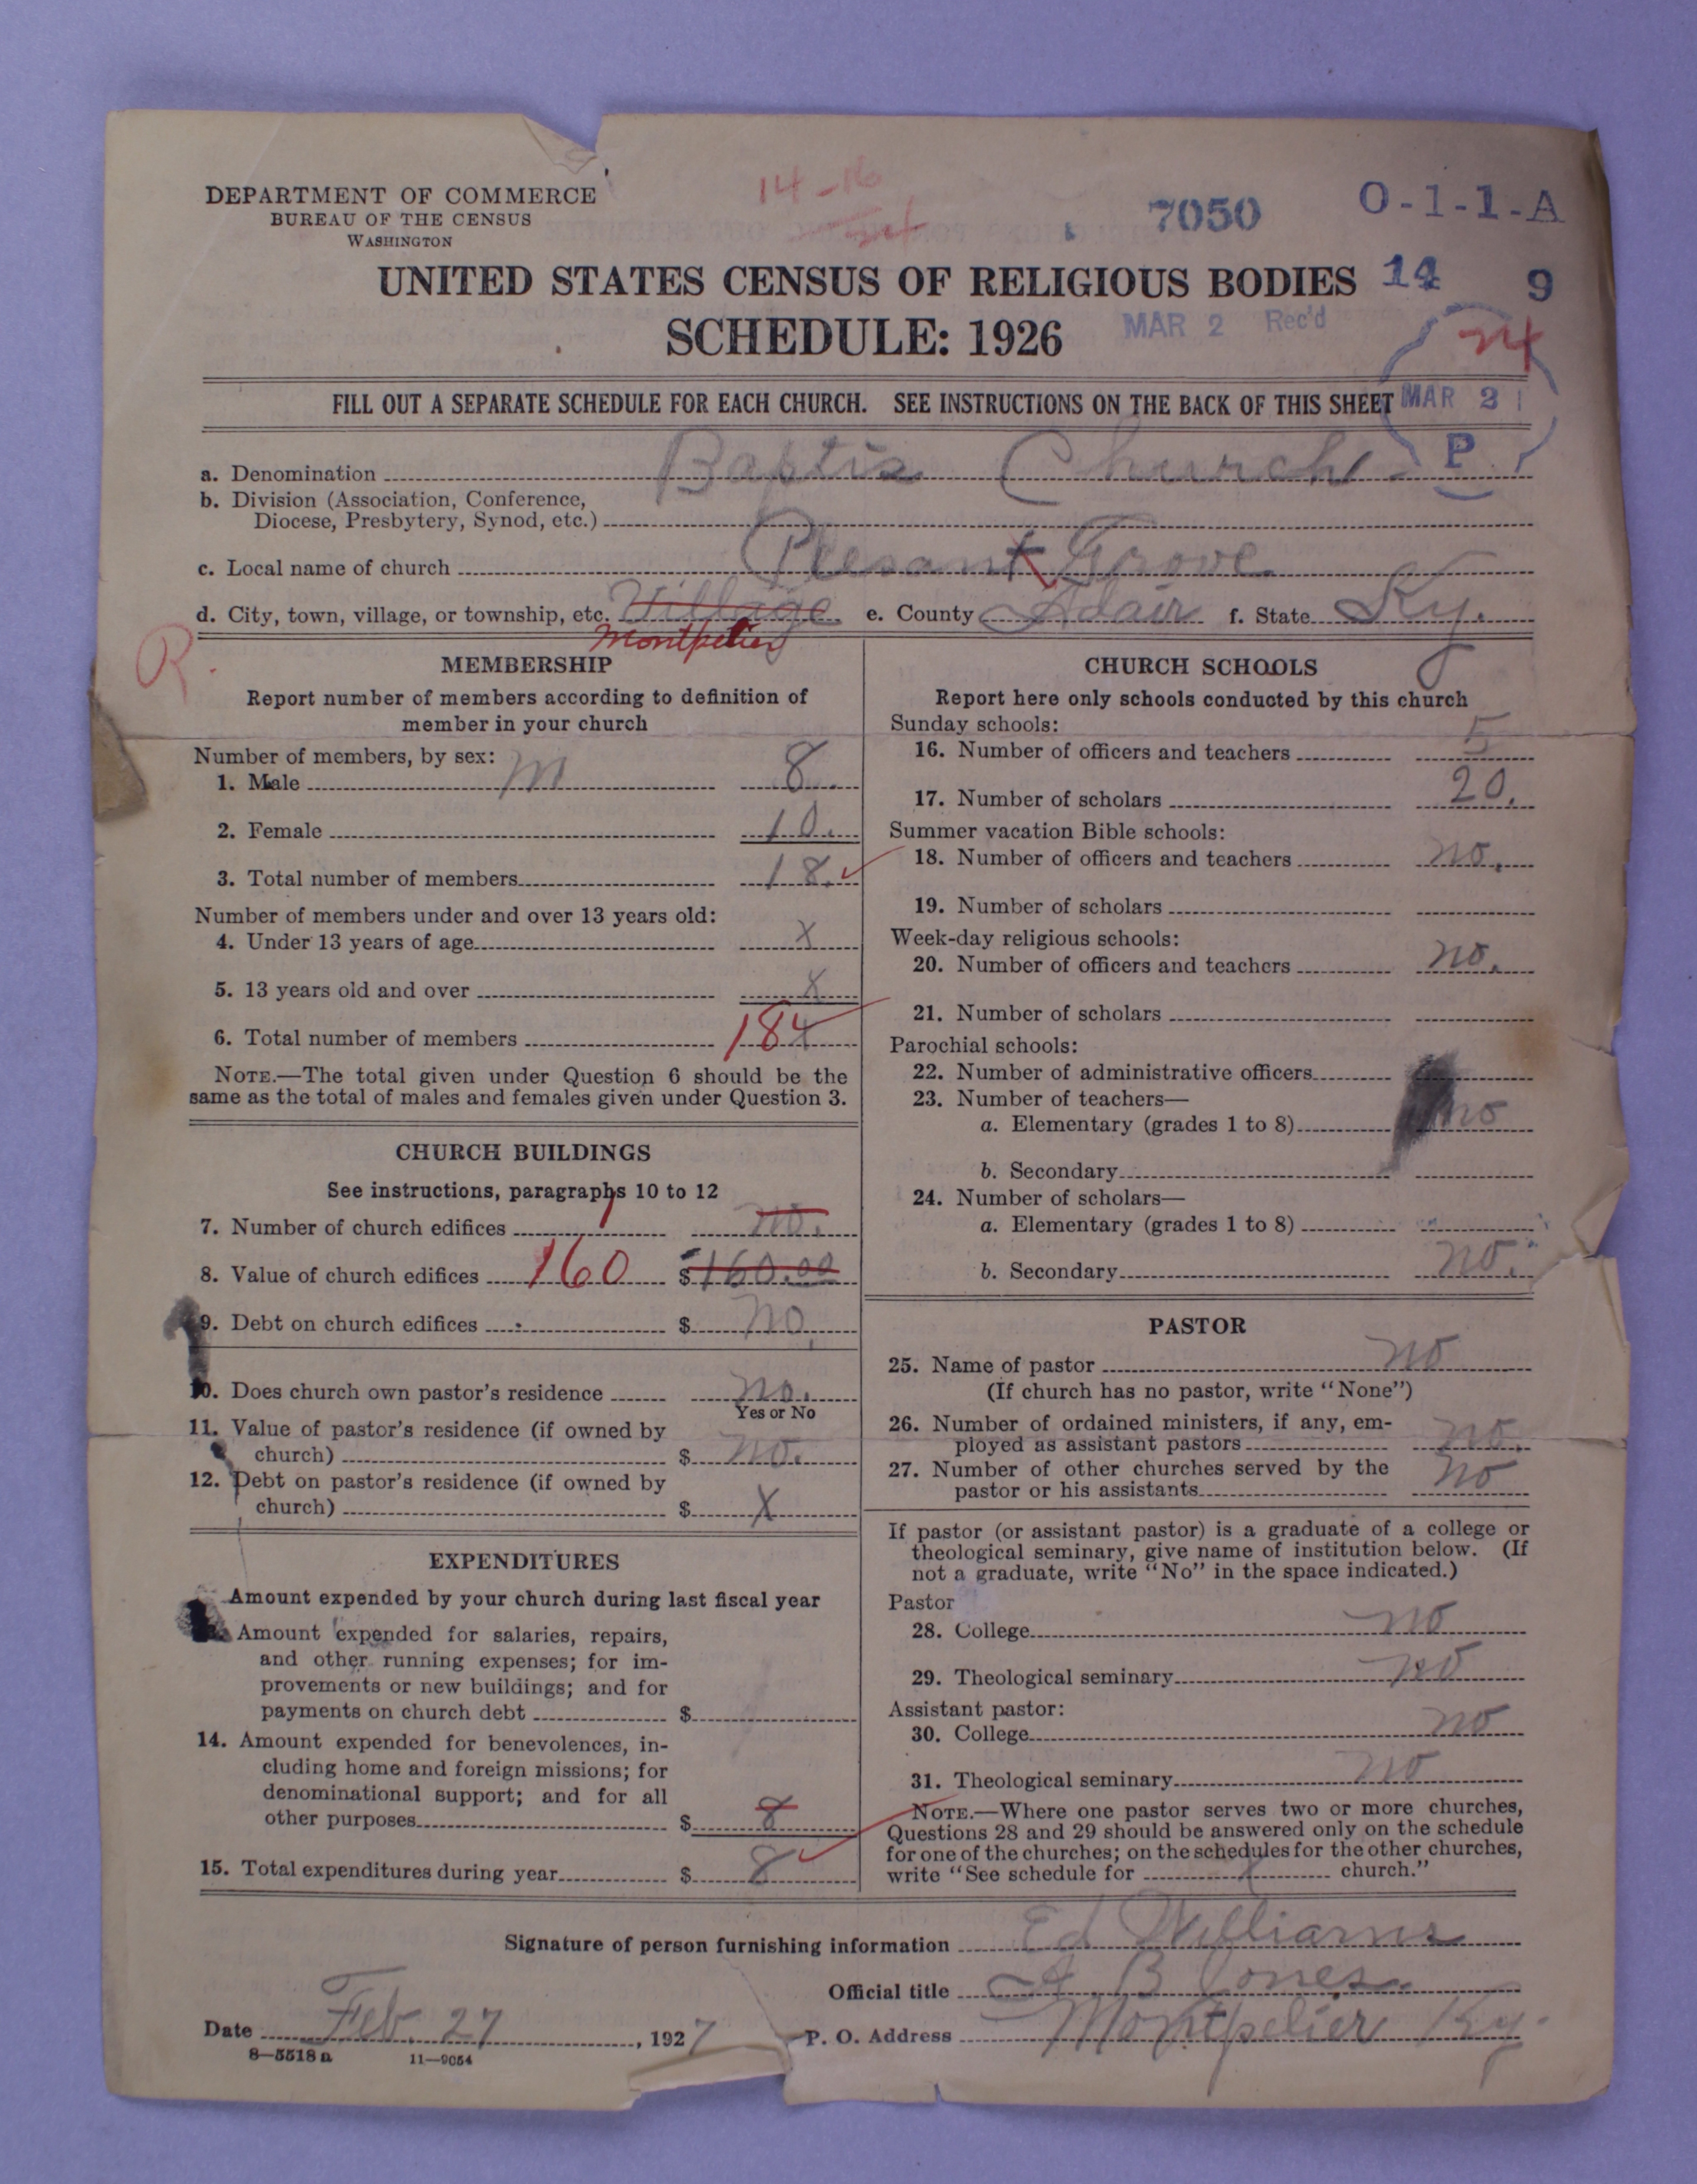 DEPARTMENT OF COMMERCE
BUREAU OF THE CENSUS
WASHINGTON
14-16
7050
O-1-1-A
UNITED STATES CENSUS OF RELIGIOUS BODIES
14 9
SCHEDULE: 1926
MAR 2 Rec'd
FILL OUT A SEPARATE SCHEDULE FOR EACH CHURCH. SEE INSTRUCTIONS ON THE BACK OF THIS SHEET
MAR 2
P
a. Denomination Baptis Church
b. Division (Association, Conference,
Diocese, Presbytery, Synod, etc.)
c. Local name of church Plesant Grove
d. City, town, village, or township, etc. Village e. County Adair f. State Ky.
Montpelier
R.
MEMBERSHIP
Report number of members according to definition of
member in your church
Number of members, by sex:
1. Male M 8.
2. Female 10.
3. Total number of members 18.
Number of members under and over 13 years old:
4. Under 13 years of age X
5. 13 years old and over X
6. Total number of members 18 X
NOTE.—The total given under Question 6 should be the
same as the total of males and females given under Question 3.
CHURCH BUILDINGS
See instructions, paragraphs 10 to 12
7. Number of church edifices 1 no.
8. Value of church edifices 160 $160.00
9. Debt on church edifices $ no.
10. Does church own pastor's residence no.
Yes or No
11. Value of pastor's residence (if owned by
church) $ no.
12. Debt on pastor's residence (if owned by
church) $ X
EXPENDITURES
Amount expended by your church during last fiscal year
Amount expended for salaries, repairs,
and other running expenses; for im-
provements or new buildings; and for
payments on church debt $
14. Amount expended for benevolences, in-
cluding home and foreign missions; for
denominational support; and for all
other purposes $ 8
15. Total expenditures during year $ 8
CHURCH SCHOOLS
Report here only schools conducted by this church
Sunday schools:
16. Number of officers and teachers 5
17. Number of scholars 20.
Summer vacation Bible schools:
18. Number of officers and teachers no.
19. Number of scholars
Week-day religious schools:
20. Number of officers and teachers no.
21. Number of scholars
Parochial schools:
22. Number of administrative officers
23. Number of teachers—
a. Elementary (grades 1 to 8) no
b. Secondary
24. Number of scholars—
a. Elementary (grades 1 to 8)
b. Secondary no.
PASTOR
25. Name of pastor no
(If church has no pastor, write "None")
26. Number of ordained ministers, if any, em-
ployed as assistant pastors no.
27. Number of other churches served by the
pastor or his assistants no
If pastor (or assistant pastor) is a graduate of a college or
theological seminary, give name of institution below. (If
not a graduate, write "No" in the space indicated.)
Pastor
28. College no
29. Theological seminary no
Assistant pastor:
30. College no
31. Theological seminary no
NOTE.—Where one pastor serves two or more churches,
Questions 28 and 29 should be answered only on the schedule
for one of the churches; on the schedules for the other churches,
write "See schedule for X church."
Signature of person furnishing information Ed Williams
Official title B Jones
Date Feb. 27, 1927 P. O. Address Montpelier Ky.
8—5518 a 11—9054